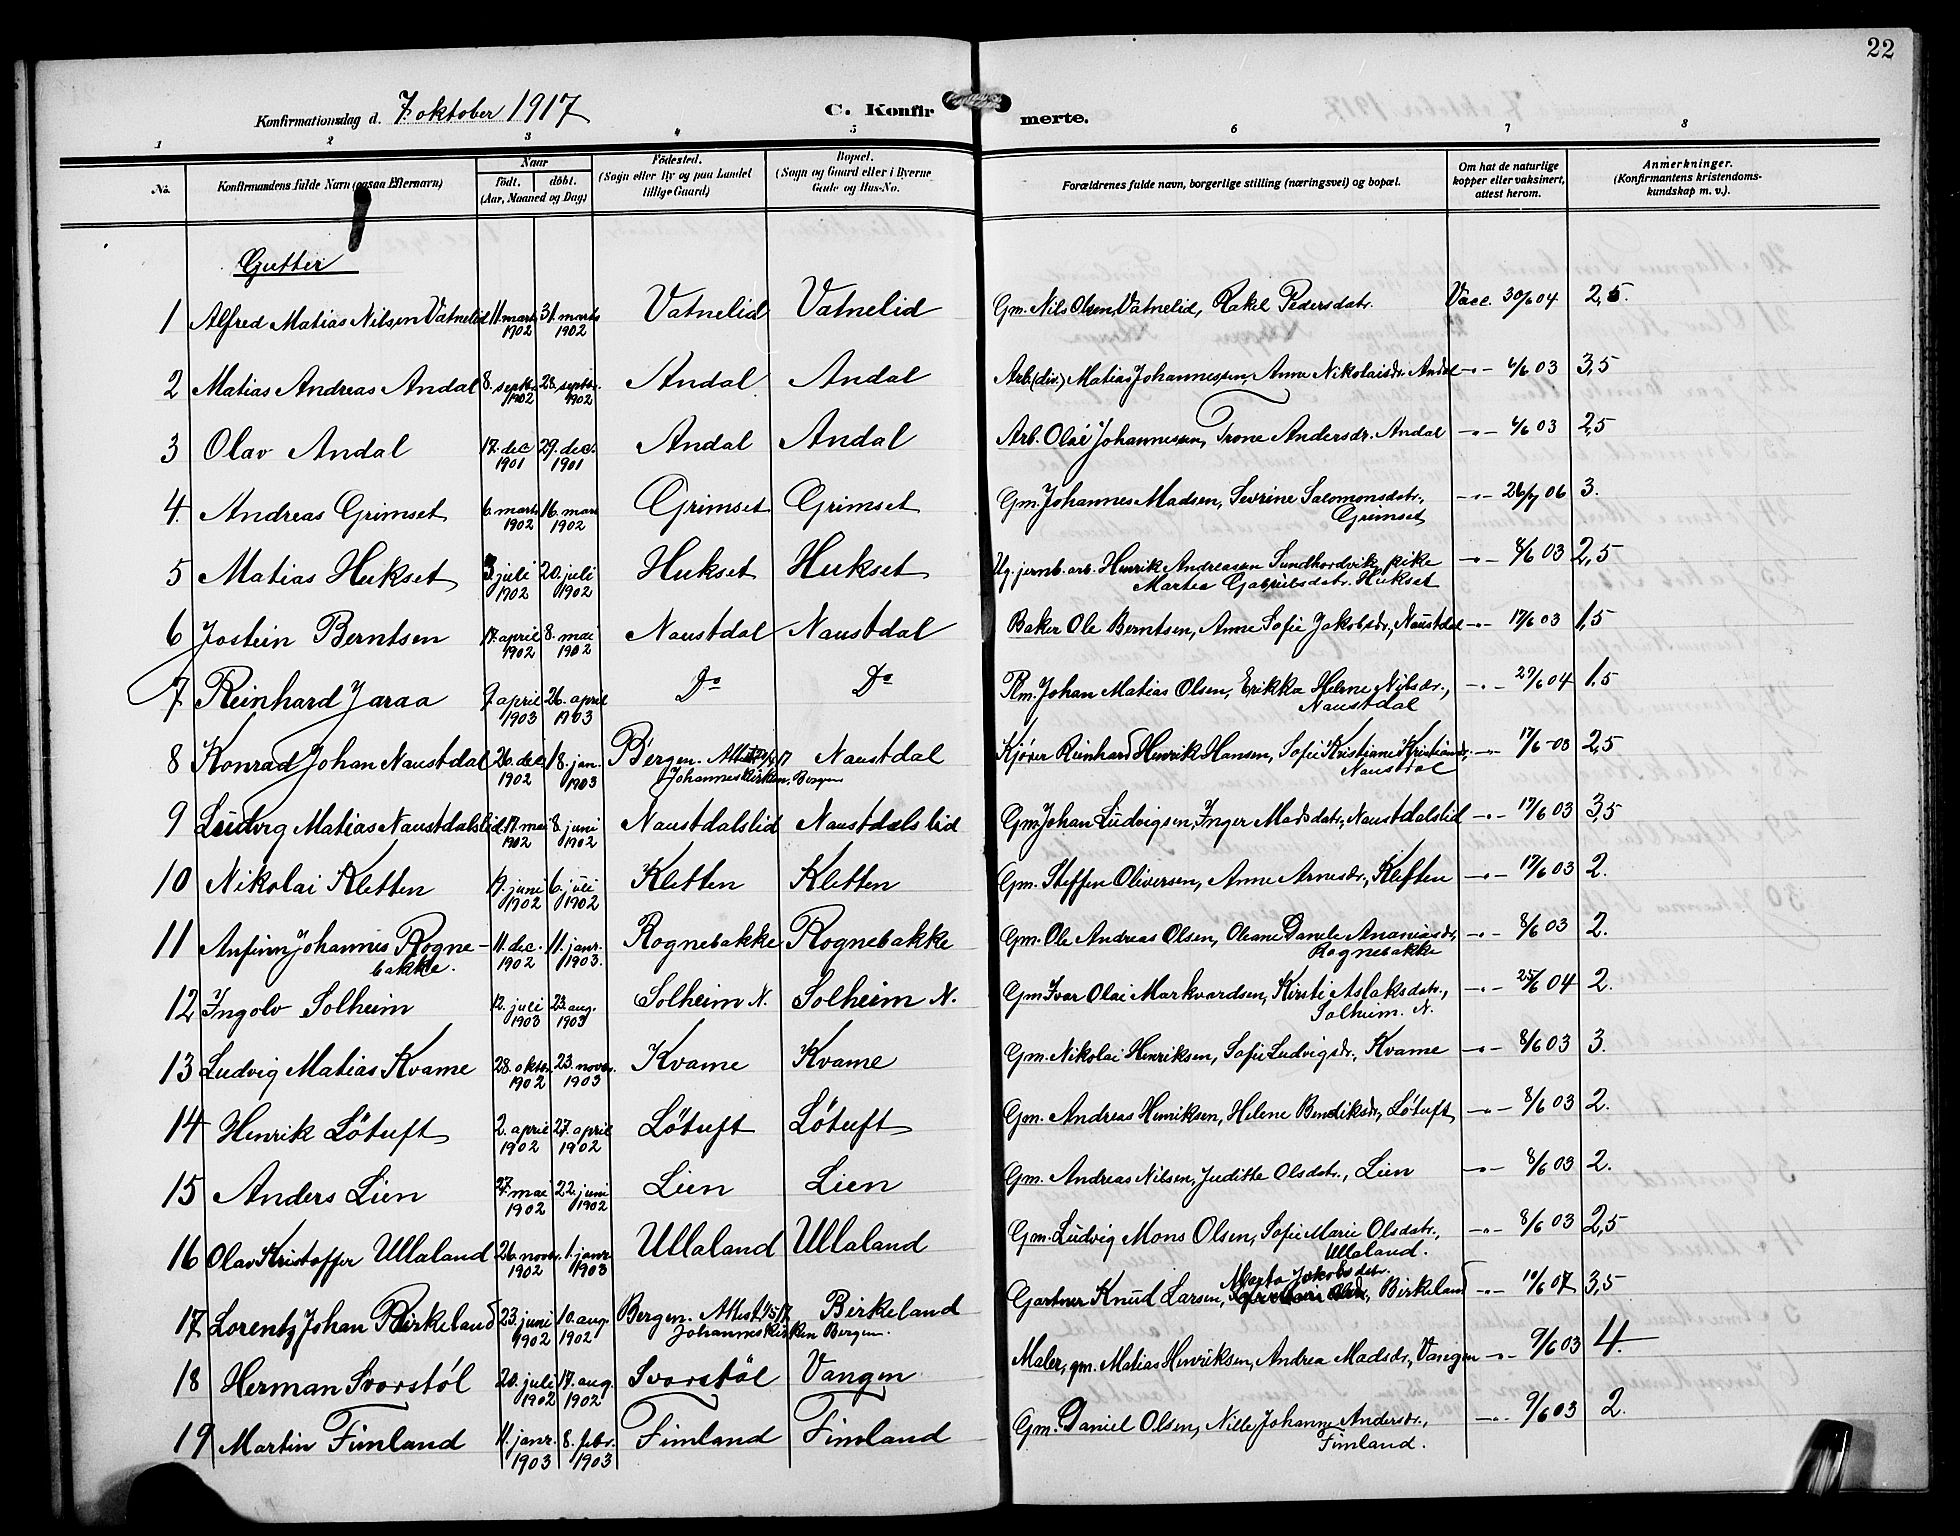 22
Konfirmationsdag d. 7 oktober 1917
C. Konfirmerte.
1 2 3 4 5 6 7 8
No. Konfirmandens fulde Navn (ogsaa Efternavn) Naar født. døbt. (Aar, Maaned og Dag) Fødested. (Sogn eller By og paa Landet tillige Gaard) Bopæl. (Sogn og Gaard eller i Byerne Gade og Hus-No. Forældrenes fulde navn, borgerlige stilling (næringsvei) og bopæl. Om hat de naturlige kopper eller vaksinert, attest herom. Anmerkninger. (Konfirmantens kristendomskundskap m. v.).
Gutter
1 Alfred Matias Nilsen Vatnelid 11. marts 1902 31. marts 1902 Vatnelid Vatnelid Gm. Nils Olsen Vatnelid, Rakel Pedersdatr. Vacc. 30/6 04 2,5.
2 Matias Andreas Andal 8. septbr. 1902 28. septbr. 1902 Andal Andal Arb. (div.) Matias Johannessen, Anne Nikolaisdr. Andal -"- 4/6 03 3,5
3 Olav Andal 17. dec 1901 29. dec. 1901 Andal Andal Arb. Olai Johannessen, Trone Andersdr. Andal -"- 4/6 03 2,5
4. Andreas Grimset 6. marts 1902 16. mars 1902 Grimset Grimset Gm. Johannes Madsen, Sevrine Salomonsdatr., Grimset -"- 26/7 06 3.
5 Matias Hukset 3. juli 1902 20. juli 1902 Hukset Hukset Ug. jernb. arb. Henrik Andreassen Sundhordvik, pike Martea Gabrielsdatr. Hukset -"- 8/6 03 2,5
6 Jostein Berntsen 17. april 1902 8. mai 1902 Naustdal Naustdal Baker Ole Berntsen, Anne Sofie Jakobsdr., Naustdal -"- 17/6 03 1,5
7 Reinhard Jaraa 7 april 1903 26. april 1903 Do Do Rm. Johan Matias Olsen, Erikka Helene Nilsdr., Naustdal -"- 29/6 04 1.5
8 Konrad Johan Naustdal 20. dec 1902 18. jan. 1903 Bergen. Attest Johanneskirken, Bergen Naustdal Kjører Reinhard Henrik Hansen, Sofie Kristiane Kristiansdr, Naustdal -"- 17/6-03 2,5
9 Ludvig Matias Naustdalslid 17. mai 1902 8. juni 1902 Naustdalslid Naustdalslid Gm. Johan Ludvigsen, Inger Madsdatr., Naustdalslid -"- 17/6 03 3,5
10 Nikolai Kletten 19. juni 1902 6. juli 1902 Kletten Kletten Gm. Steffen Oliversen, Anne Arnesdr., Kleften -"- 17/6 03 2.
11 Anfinn Johannes Rognebakke. 11. dec. 1902 11. janr. 1903. Rognebakke Rognebakke Gm. Ole Andreas Olsen, Oleane Danele Ananiasdr., Rognebakke -"- 8/6 03 2.
12 Ingolv Solheim 12. juli 1903 23. aug. 1903 Solheim N. Solheim N. Gm. Ivar Olai Markvardsen, Kirsti Aslaksdatr., Solheim. N. -"- 25/6 04 2.
13 Ludvig Matias Kvame 28. oktr. 1902 23. novbr. 1903 Kvame Kvame Gm. Nikolai Henriksen, Sofie Ludvigsdr., Kvame -"- 8/6 03 3.
14 Henrik Løtuft 2. april 1902 27. april 1902 Løtuft Løtuft Gm. Andreas Henriksen, Helene Bendiksdr., Løtuft -"- 8/6 03 2.
15 Anders Lien 27. mai 1902 22. juni 1902 Lien Lien Gm. Andreas Nilsen, Judithe Olsdatr., Lien -"- 8/6 03 2.
16 Olav Kristoffer Ullaland 26. novbr. 1902 1. janr. 1903 Ullaland Ullaland Gm. Ludvig Mons Olsen, Sofie Marie Olsdatr., Ullaland. -"- 8/6 03 2,5
17 Lorentz Johan Birkeland 23. juni 1902 10. aug. 1902 Bergen. Attest Johanneskirken Bergen. Birkeland Gartner Knud Larsen, Marta Jakobsdatr., Birkeland -"- 19/6 07 3,5
18 Herman Svorstøl 20. juli 1902 17. aug. 1902 Svorstøl Vangen Maler, gm. Matias Henriksen, Andrea Madsdr., Vangen -"- 9/6 03 4.
19 Martin Fimland 11. janr. 1903 8. febr. 1903 Fimland Fimland Gm. Daniel Olsen, Nille Johanne Andersdr., Fimland. -"- 9/6 03 2.